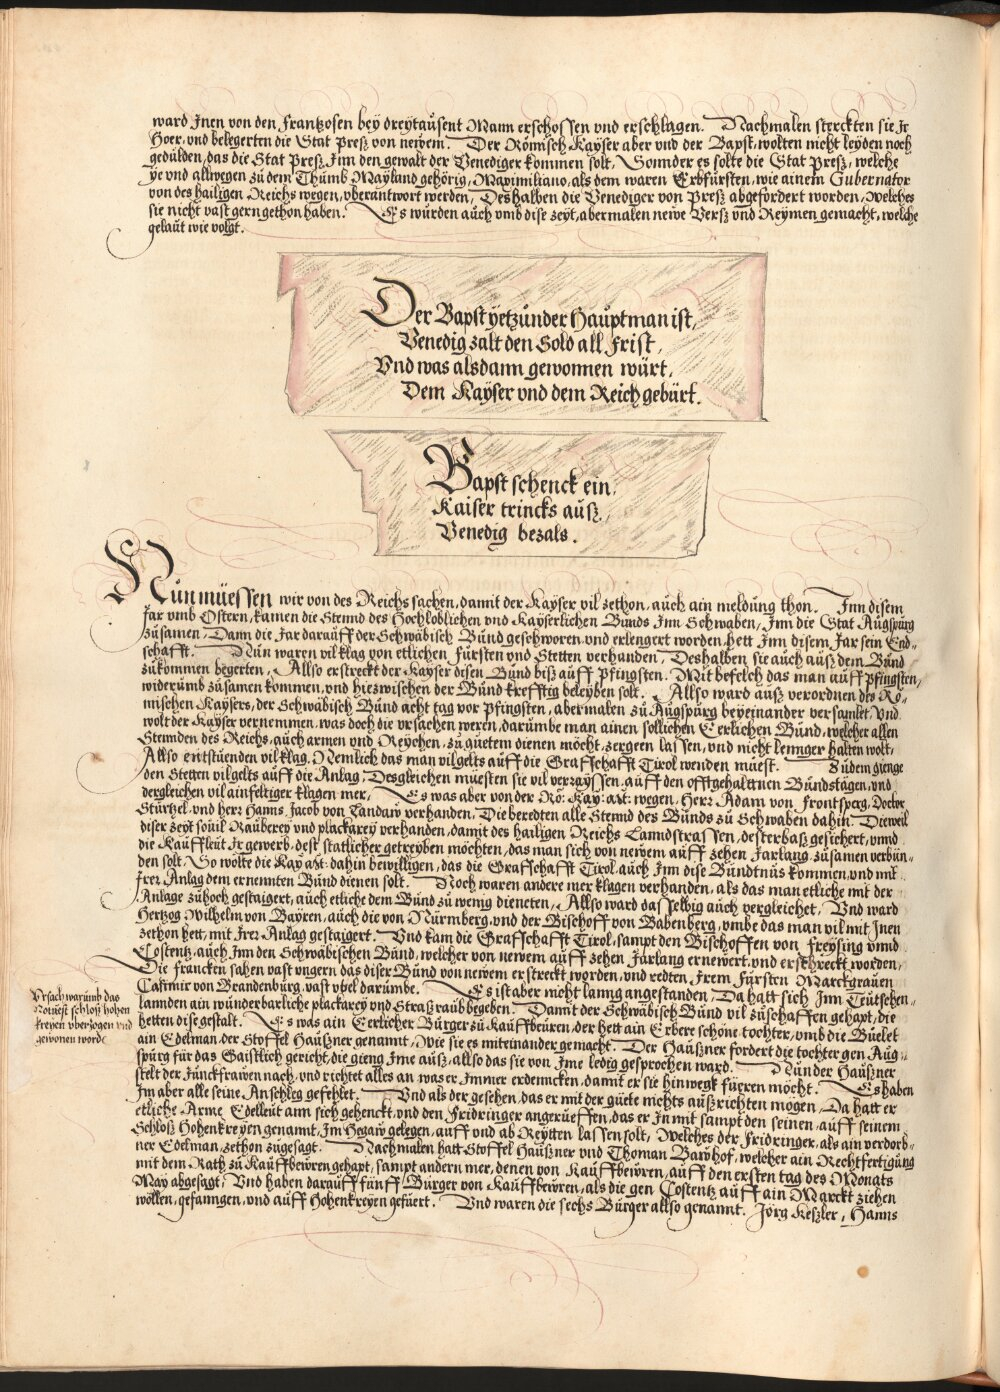 ward Jnen von den Frantzosen bey dreytausent Mann erschossen vnd erschlagen. Nachmalen sterckten sie Jr
Hoer, vnd belegerten die Stat Presz von newem. Der Römisch Kayser aber vnd der Bapst, wolten nicht leyden noch
gedulden, das die Stat Presz, Jnn den gewalt der Venediger kommen solt, Sounder es solte die Stat Presz, welche
ye vnd allwegen zu dem Thumb Mayland gehörig, Maximiliano, als dem waren Erbfürsten, wie ainem Gubernator
von des hailigen Reichs wegen, vberantwort werden, Deshalben die Venediger von Presz abgefordert worden, Welches
sie nicht vast gern gethon haben. Es wurden auch vmb dise zeyt, abermalen newe Versz vnd Reymen gemacht, welche
gelaut wie volgt.
Der Bapst yetzunder Hauptman ist,
Venedig zalt den Sold all Frist,
Vnd was alsdann gewonnen würt,
Dem Kayser vnd dem Reich gebürt.
Bapst schenck ein,
Kaiser trincks ausz,
Venedig bezals.
Nun müessen wir von des Reichs sachen, damit der Kayser vil zethon, auch ain meldung thon. Jnn disem
Jar vmb Ostern, kamen die Stennd des Hochloblichen vnd Kayserlichen Bunds Jnn Schwaben, Jnn die Stat Augspurg
zusamen, Dann die Jar darauff der Schwäbisch Bund geschworen, vnd erlengert worden, hett Jnn disem Jar sein End-
schafft. Nun waren vil klag von etlichen Fürsten vnd Stetten verhanden, Deshalben sie auch ausz dem Bund
zukommen begerten, Allso erstreckt der Kayser disen Bund bisz auff Pfingsten. Mit befelch das man auff Pfingsten,
widerumb zusamen kommen, vnd hiezwischen der Bund krefftig beleyben solt. Allso ward ausz verordnen des Rö-
mischen Kaysers, der Schwäbisch Bund acht tag vor Pfingsten, abermalen zu Augspurg beyeinander versamlet, Vnd
wolt der Kayser vernemmen, was doch die vrsachen weren, darumbe man ainen sollichen Eerlichen Bund, welcher allen
Stennden des Reichs, auch armen vnd Reychen, zu guetem dienen möcht, zergeen lassen, vnd nicht lennger halten wolt,
Allso entstuenden vil klag, Nemlich das man vil gelts auff die Grafschafft Tirol wenden müest. Zu dem gienge
den Stetten vil gelts auff die Anlag, Desgleichen müesten sie vil verrayssen, auff den offtgehalttnen Bundstägen, vnd
dergleichen vil ainfeltiger klagen mer, Es was aber von der Rö: Kay: Mt: wegen, Herr Adam von Frontsperg, Doctor
Stürtzel, vnd herr Hanns Jacob von Landaw verhanden, Die beredten alle Stennd des Bunds zu Schwaben dahin. Dieweil
diser zeyt souil Rauberey vnd plackarey verhanden, damit des hailigen Reichs Lanndstrassen, desterbasz gesichert, vnnd
die Kauffleut Jr gewerb, dest statlicher getreyben möchten, das man sich von newem auff zehen Jarlang zusamen verbun-
den solt, So wolte die Kay: Mt: dahin bewilligen, das die Grafschafft Tirol auch Jnn dise Bundtnus kommen, vnd mit
Jrer Anlag dem ernennten Bund dienen solt. Noch waren andere mer klagen verhanden, als das man etliche mit der
Anlage zuhoch gestaigert, auch etliche dem Bund zu wenig dieneten, Allso ward dasselbig auch vergleichet, Vnd ward
Hertzog Wilhelm von Bayren, auch die von Nürmberg, vnd der Bischoff von Babenberg, vmbe das man vil mit Jnen
zethon hett, mit Jrer Anlag gestaigert. Vnd kam die Grafschafft Tirol, sampt den Bischoffen von Freysing vnnd
Costentz, auch Jnn den Schwäbischen Bund, welcher von newem auff zehen Jarlang ernewert, vnd erstreckt worden,
Die Francken sahen vast vngern das diser Bund von newem erstreckt worden, vnd redten Jrem Fürsten Marckgrauen
Casimir von Brandenburg, vast vbel darumbe. Es ist aber nicht lanng angestanden, Da hatt sich Jnn Teutschen-
lannden ain wunderbarliche plackarey vnd Straszraub begeben. Damit der Schwäbisch Bund vil zuschaffen gehapt, die
hetten dise gestalt. Es was ain Eerlicher Burger zu Kauffbeuren, der hett ain Erbere schöne tochter, vmb die Buelet
ain Edelman, der Stoffel Hauszner genannt, Wie sie es miteinander gemacht. Der Hauszner fordert die tochter gen Aug-
spurg für das Gaistlich gericht, die gieng Jme ausz, allso das sie von Jme ledig gesprochen ward. Nun der Hauszner
stelt der Junckfrawen nach, vnd richtet alles an was er Jmmer erdenncken, damit er sie hinwegk füeren möcht. Es haben
Jm aber alle seine Anschleg gefehlet. Vnd als der gesehen, das er mit der güete nichts auszrichten mögen, Da hatt er
etliche Arme Edelleut ann sich gehenckt, vnd den Fridringer angerüeffen, das er Jn mit sampt den seinen, auff seinem
Schlosz Hohenkreyen genannt, Jm Hegaw gelegen, auff vnd ab Reytten lassen solt, Welches der Fridringer, als ain verdorb-
ner Edelman, zethon zugesagt. Nachmalen hatt Stoffel Hauszner vnd Thoman Bawhof, welcher ain Rechtfertigung
mit dem Rath zu Kauffbewren gehapt, sampt andern mer, denen von Kauffbewren, auff den ersten tag des Monats
May abgesagt, Vnd haben darauff fünff Burger von Kauffbewren, als die gen Costentz auff ain Marckt ziehen
wöllen, gefanngen, vnd auff Hohenkreyen gefüert. Vnd waren die sechs Burger allso genannt. Jörg Keszler, Hanns
Vrsach warumb das
Rauest schlosz hohen
kreyen vberzogen vnd
gewonen worde